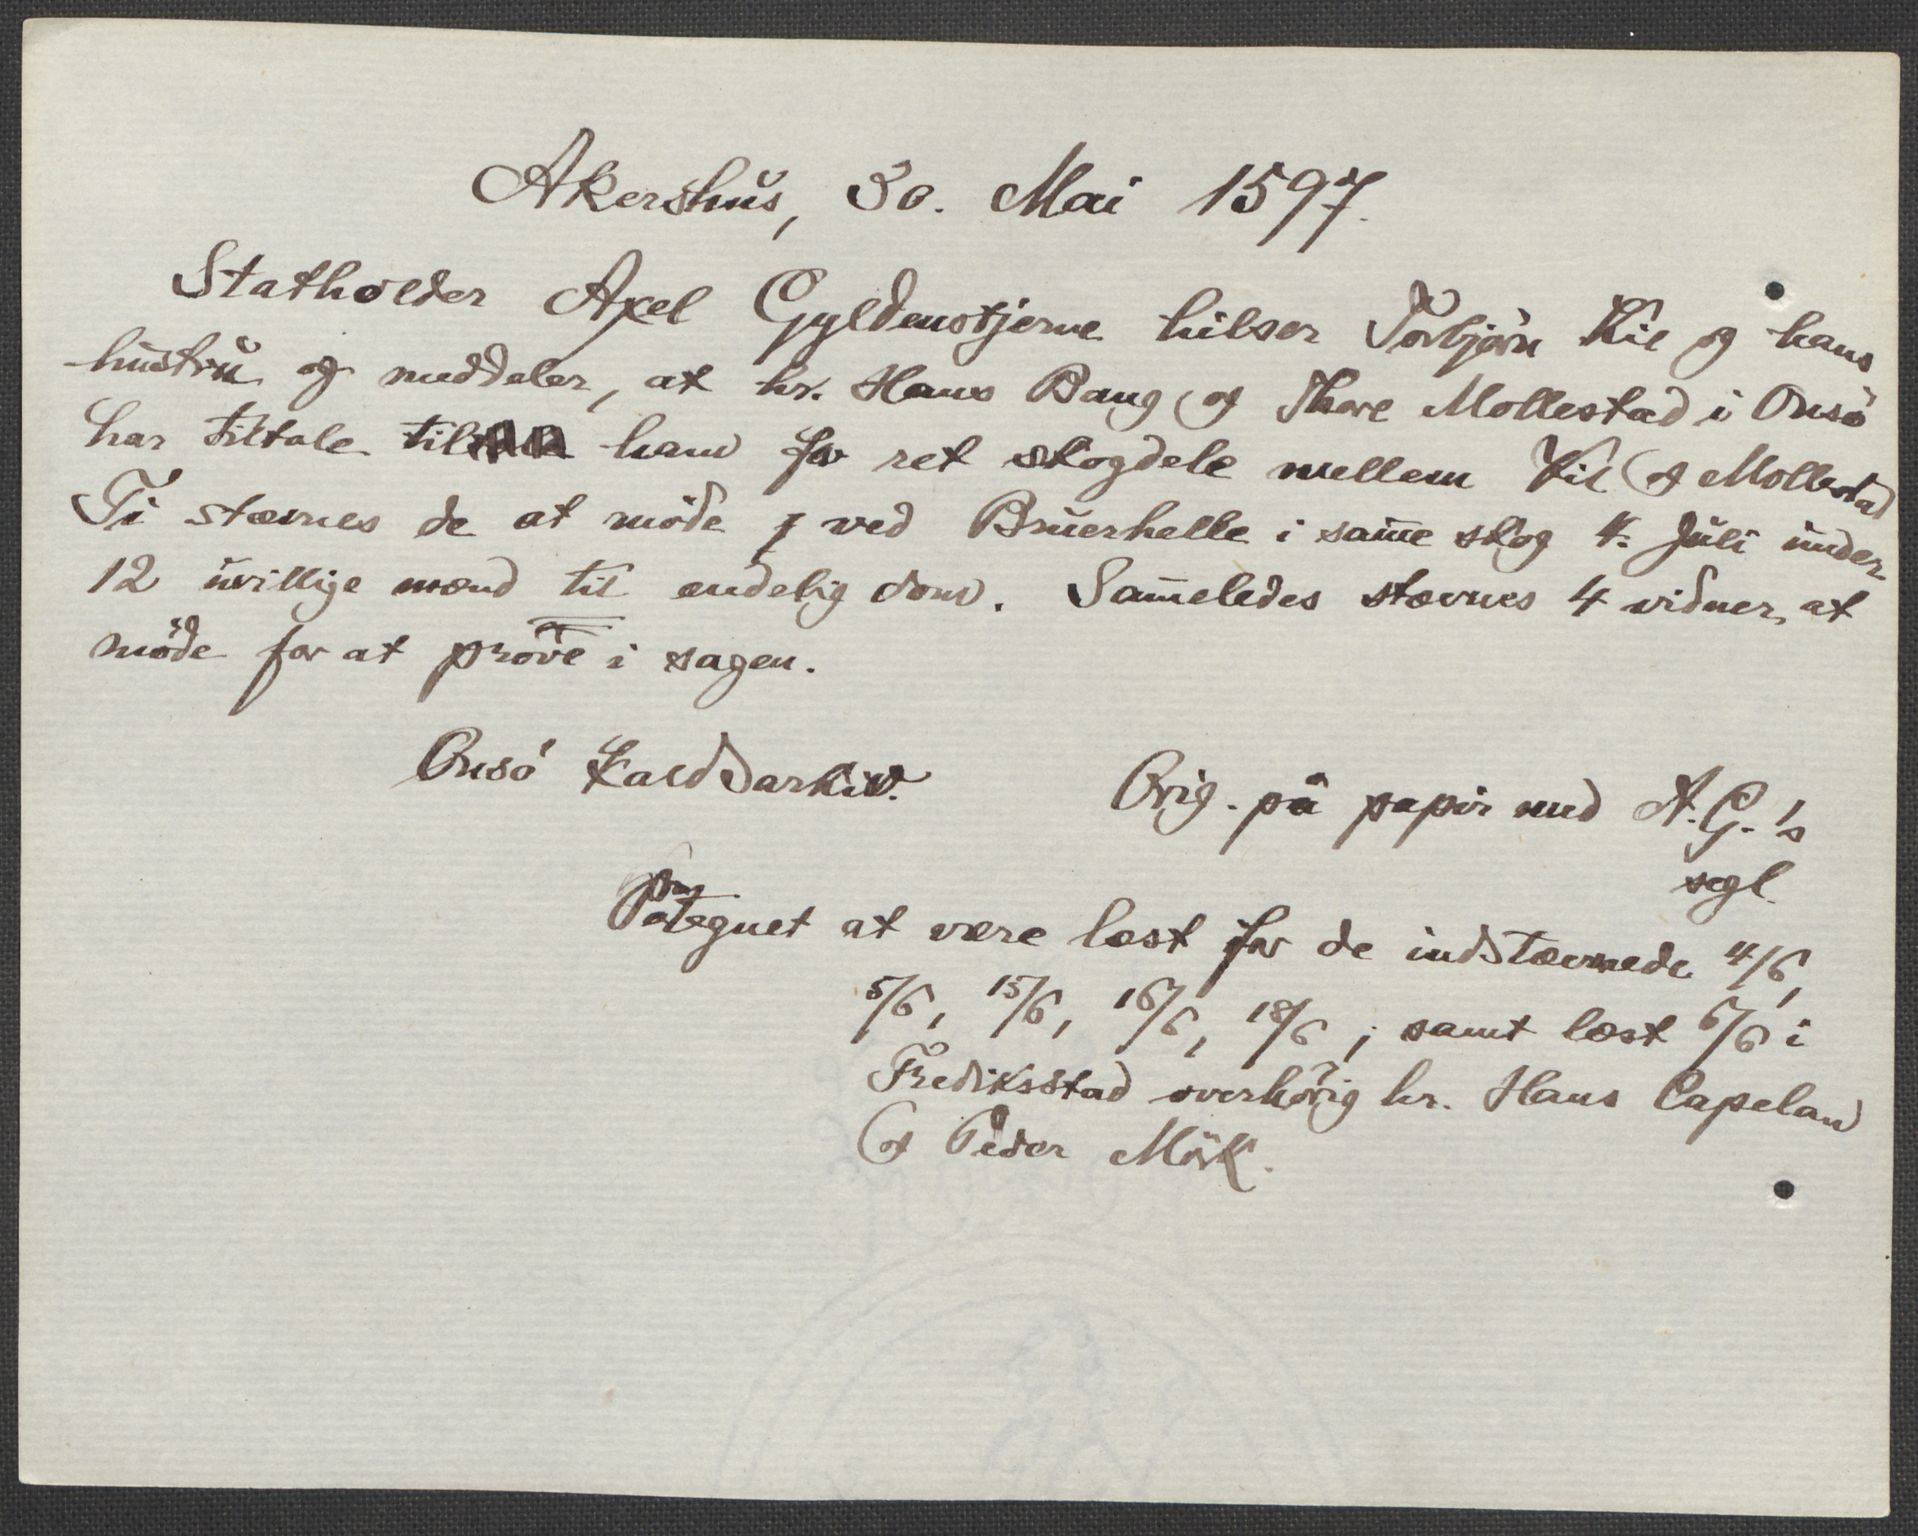 Akershus, 30. Mai 1597.
Statholder Axel Gyldenstjerne hilser Torbjörn Kil og hans
hustru og meddeler, at hr. Hans Bang og Thore Mollestad i Onsö
har tiltale til ham for ret skogdele mellem Kil og Mollestad
Ti stævnes de at möde ved Bruerhelle i sam̅e skog 4. Juli under
12 uvillige mænd til endelig dom. Sam̅eledes stævnes 4 vidner, at
möde for at pröve i sagen.
Onsö kaldsarkiv. Orig. på papir med A.G.'s
segl.
Påtegnet at være læst for de indstævnede 4/6,
5/6, 15/6, 16/6, 18/6; samt læst 6/6 i
Frediksstad overhörig hr. Hans Capelan
og Peder Mörk.